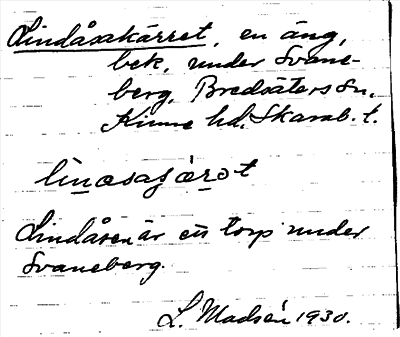 Lindåsakärret, en äng,
bek. under Svane-
berg, Bredsäters Sn.
Kinne hd. Skarab. l.
Lindåsen är ett torp under
Svaneberg.
L. Madsén 1930.